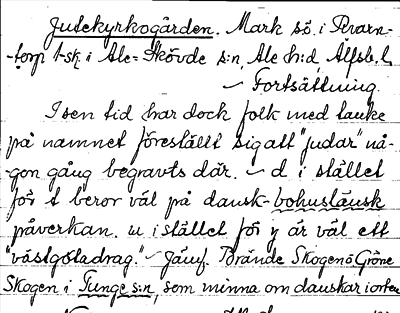 Judekyrkogården. Mark sö. i Kvarn-
torp 1-sk. i Ale-Skövde s:n, Ale h:d, Älfsb. l.
~ Fortsättning.
I sen tid har dock folk med tanke
på namnet föreställt sig att "judar" nå-
gon gång begravts där. ~ d i stället
för t beror väl på dansk-bohuslänsk
påverkan. u i stället för y är väl ett
"västgötadrag." ~ Jämf. Brände Skogen o Gröne
Skogen i Tunge s:n, som minna om danskar i orten